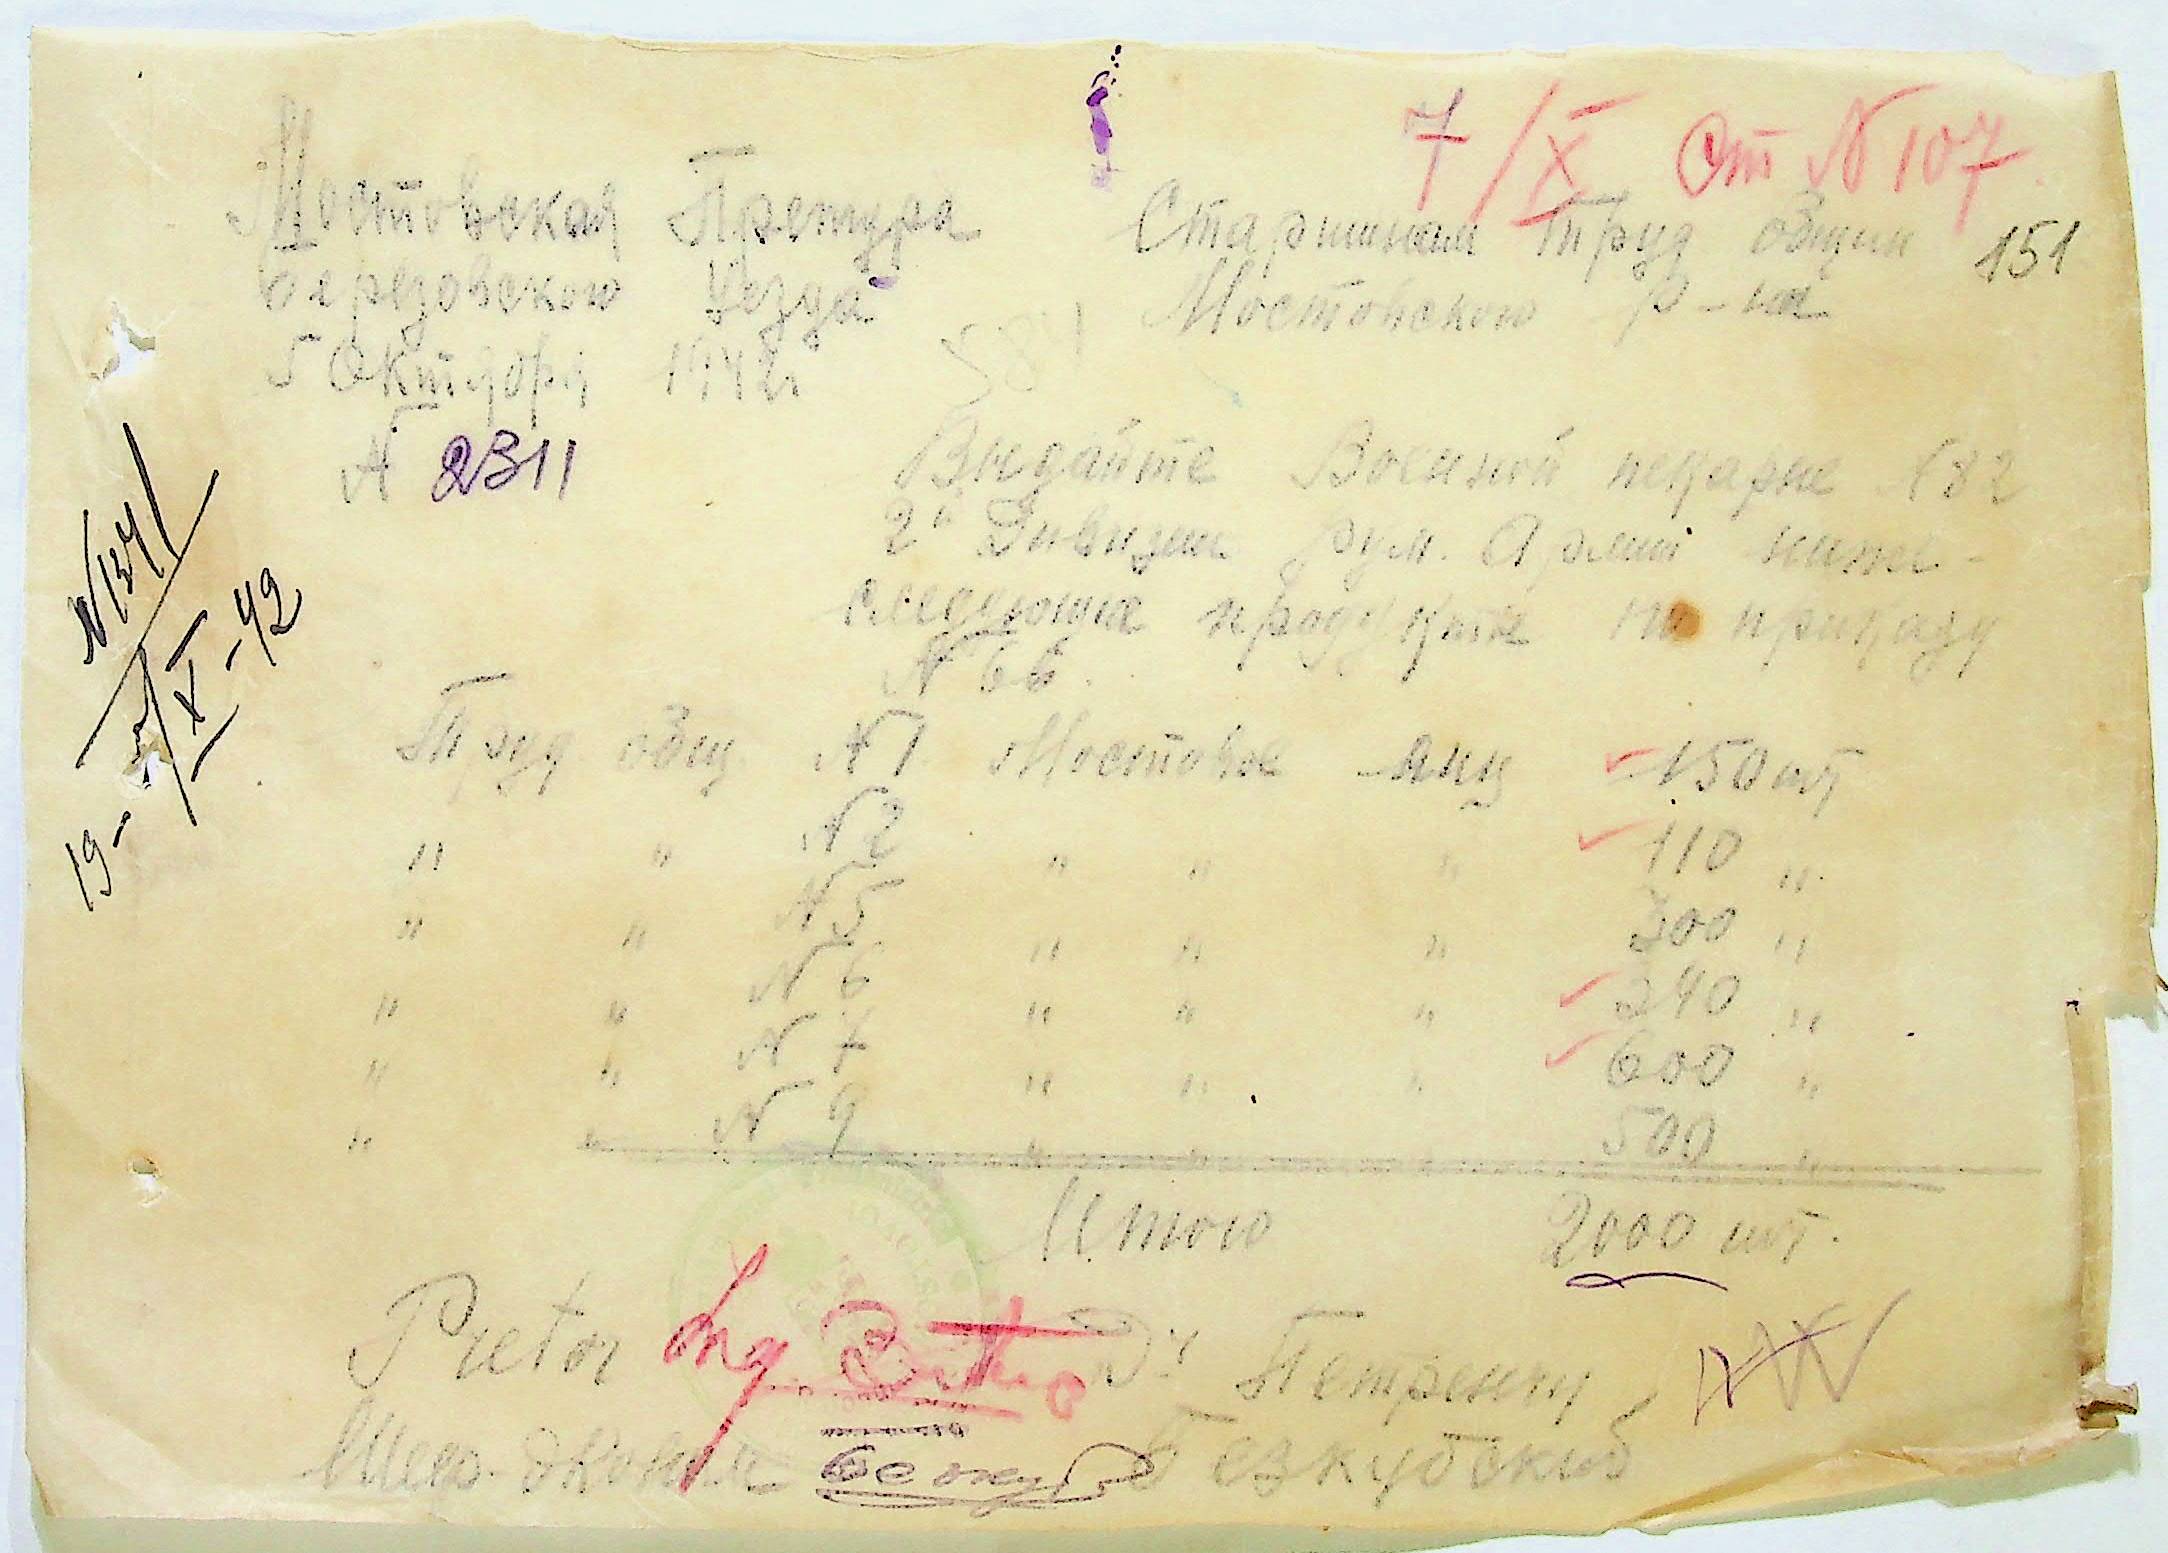 7/X От N 107
Мостовская Претура
Березовского Уезда
5 Октября 1942 г
N 2311
Старшинам Труд общин 151
Мостовского р-на
581
Выдайте Военной пекарне N 82
2й Дивизии рум. Армии ниже-
следующие продукты по приказу
N 66.
N 1341
19- 5/X -42
Труд общ. N 1 Мостовое Яиц - 150 шт
" " N 2 " " " 110 "
" " N 5 " " " 300 "
" " N 6 " " " 240 "
" " N 7 " " " 600 "
" " N 9 " " " 500 "
Итого 2000 шт.
Pretor Ing Dr Петренчу
Шеф. Эконом Безкубский